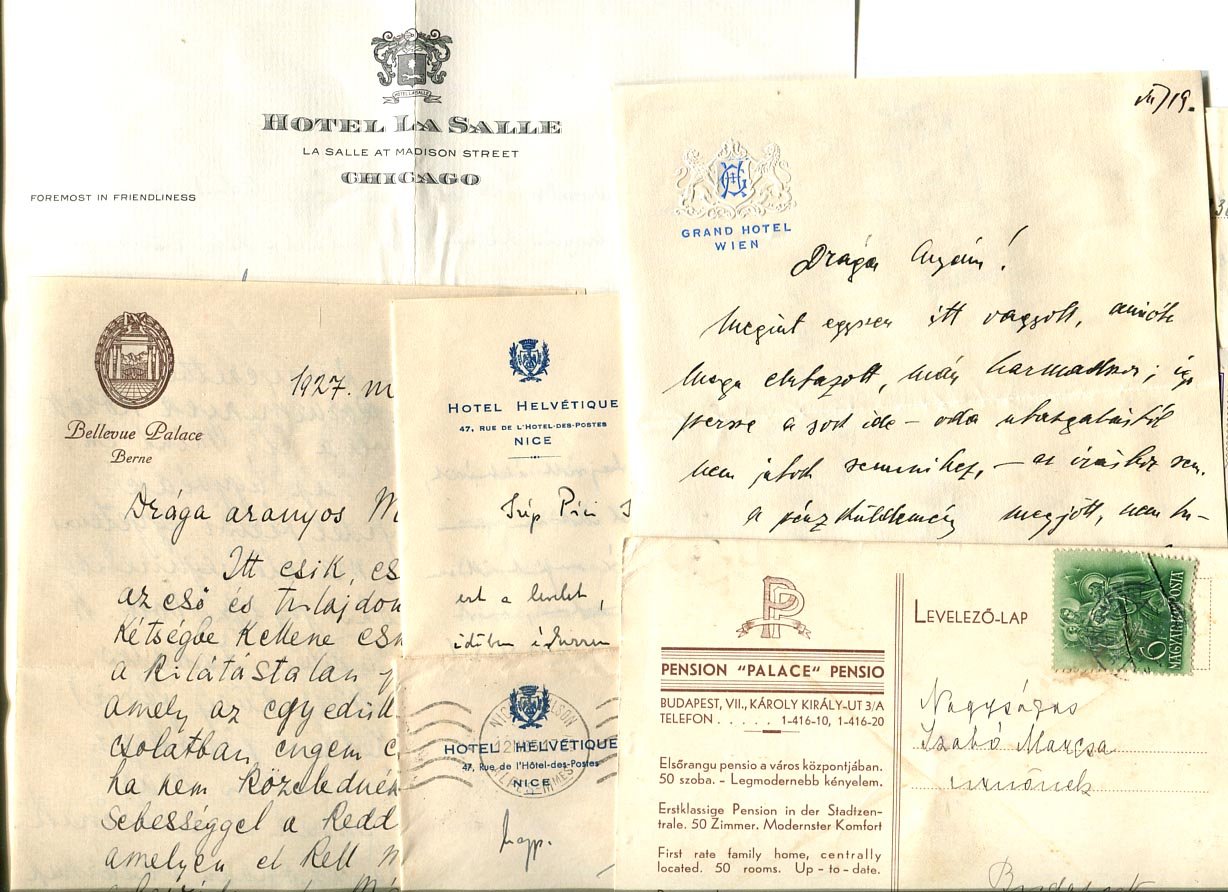 HOTEL LASALLE
HOTEL LA SALLE
LA SALLE AT MADISON STREET
CHICAGO
FOREMOST IN FRIENDLINESS
VII/19.
GRAND HOTEL
WIEN
Drága Anyám!
Megint egyszer itt vagyok, amióta
elutazott, már harmadszor; így
persze a sok ide-oda utazgatástól
nem jutok semmihez, — az íráshoz sem.
A pénzküldemény megjött, nem
Bellevue Palace
Berne
1927. m
Drága aranyos M
Itt csik, cs
az eső és tulajdon
kétségbe kellene esn
a kilátástalan
amely az egyedüll
csolatban, engem e
ha nem közelednén
sebességgel a Redd
amelyen el kell m
HOTEL HELVÉTIQUE
47, RUE DE L'HOTEL-DES-POSTES
NICE
Szép Pici
ezt a levelet,
időben
HOTEL HELVÉTIQUE
47, Rue de l'Hôtel-des-Postes
NICE
PP
PENSION "PALACE" PENSIO
BUDAPEST, VII., KÁROLY KIRÁLY-UT 3/A
TELEFON ..... 1-416-10, 1-416-20
Elsőrangu pensio a város központjában.
50 szoba. - Legmodernebb kényelem.
Erstklassige Pension in der Stadtzen-
trale. 50 Zimmer. Modernster Komfort
First rate family home, centrally
located. 50 rooms. Up-to-date.
LEVELEZŐ-LAP
6
MAGYAR POSTA
Nagyságos
Szabó Marcsa
urnőnek
Budapest